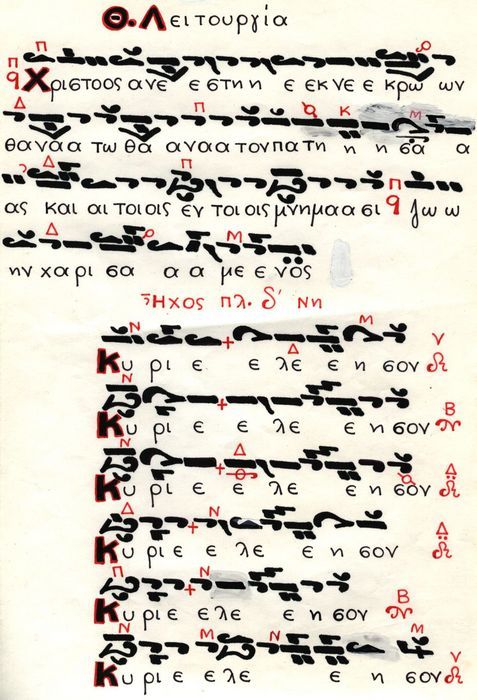 Θ. Λειτουργία
π
Χριστοος ανε ε στη η ε εκ νε ε κρω ων
Δ π κ Μ
θανα α τω θα ανα α τον πα τη η η σα α
Δ π
ας και αι τοι οις εν τοι οις μνημα α σι ζω ω
Δ Μ
ην χα ρι σα α α με ε νος
Ἦχος πλ. δ' Νη
Ν Δ Μ ν
Κυ ρι ε ε λε ε η σον
Ν Β
Κυ ρι ε ε λε ε η σον
Ν Δ Δ
Κυ ρι ε ε λε ε η σον
Δ Ν Δ
Κυ ρι ε ε λε ε η σον
Π Ν Β
Κυ ρι ε ε λε ε η σον
Ν Μ Ν Μ ν
Κυ ρι ε ε λε ε η σον